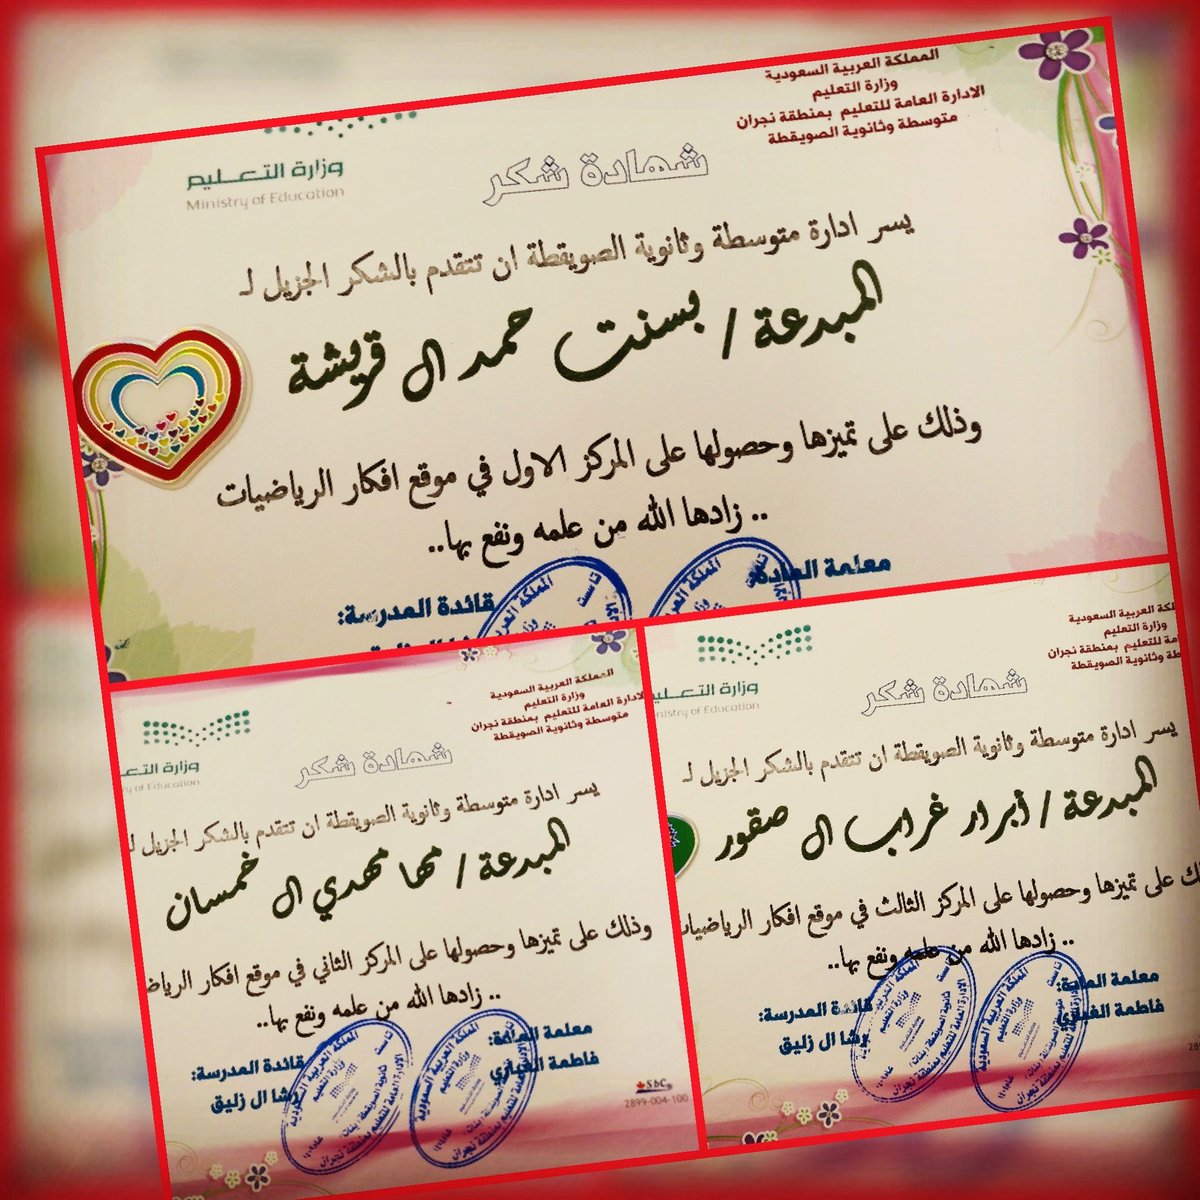 المملكة العربية السعودية
وزارة التعليم
الادارة العامة للتعليم بمنطقة نجران
متوسطة وثانوية الصويقطة
وزارة التعليم
Ministry of Education
شهادة شكر
يسر ادارة متوسطة وثانوية الصويقطة ان تتقدم بالشكر الجزيل لـ
المبدعة / بسنت حمد ال قريشة
وذلك على تميزها وحصولها على المركز الاول في موقع افكار الرياضيات
.. زادها الله من علمه ونفع بها..
معلمة المادة:
قائدة المدرسة:
المملكة العربية السعودية
وزارة التعليم
الادارة العامة للتعليم بمنطقة نجران
متوسطة وثانوية الصويقطة
وزارة التعـ
y of Education
شهادة شكر
يسر ادارة متوسطة وثانوية الصويقطة ان تتقدم بالشكر الجزيل لـ
المبدعة / مها مهدي ال خمسان
وذلك على تميزها وحصولها على المركز الثاني في موقع افكار الرياضـ
.. زادها الله من علمه ونفع بها..
معلمة المادة:
فاطمة الغباري
قائدة المدرسة:
رشا ال زليق
SbC
2899-004-100
لكة العربية السعودية
وزارة التعليم
ـة للتعليم بمنطقة نجران
طة وثانوية الصويقطة
ـزارة التعليم
nistry of Education
شهادة شكر
يسر ادارة متوسطة وثانوية الصويقطة ان تتقدم بالشكر الجزيل لـ
المبدعة / أبرار غراب ال صقور
ـك على تميزها وحصولها على المركز الثالث في موقع افكار الرياضيات
.. زادها الله من علمه ونفع بها..
معلمة المادة:
فاطمة الغباري
قائدة المدرسة:
رشا ال زليق